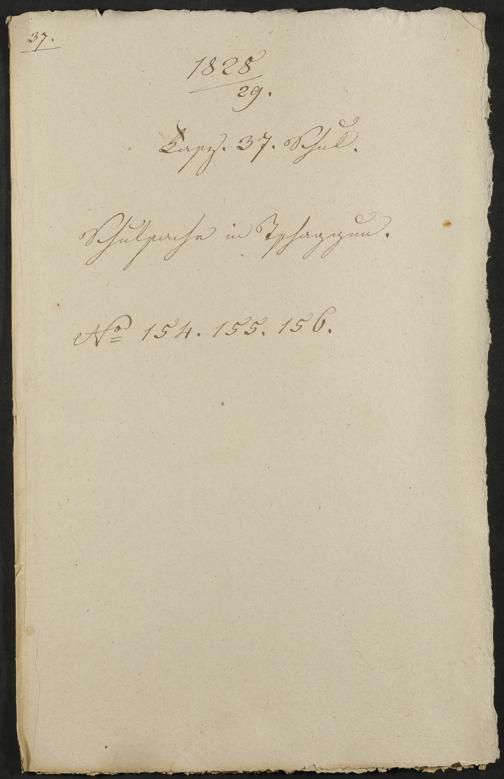 37.
1828
29.
Fasz. 37. Schul.
Schulsache in Tschaggun.
No 154. 155. 156.